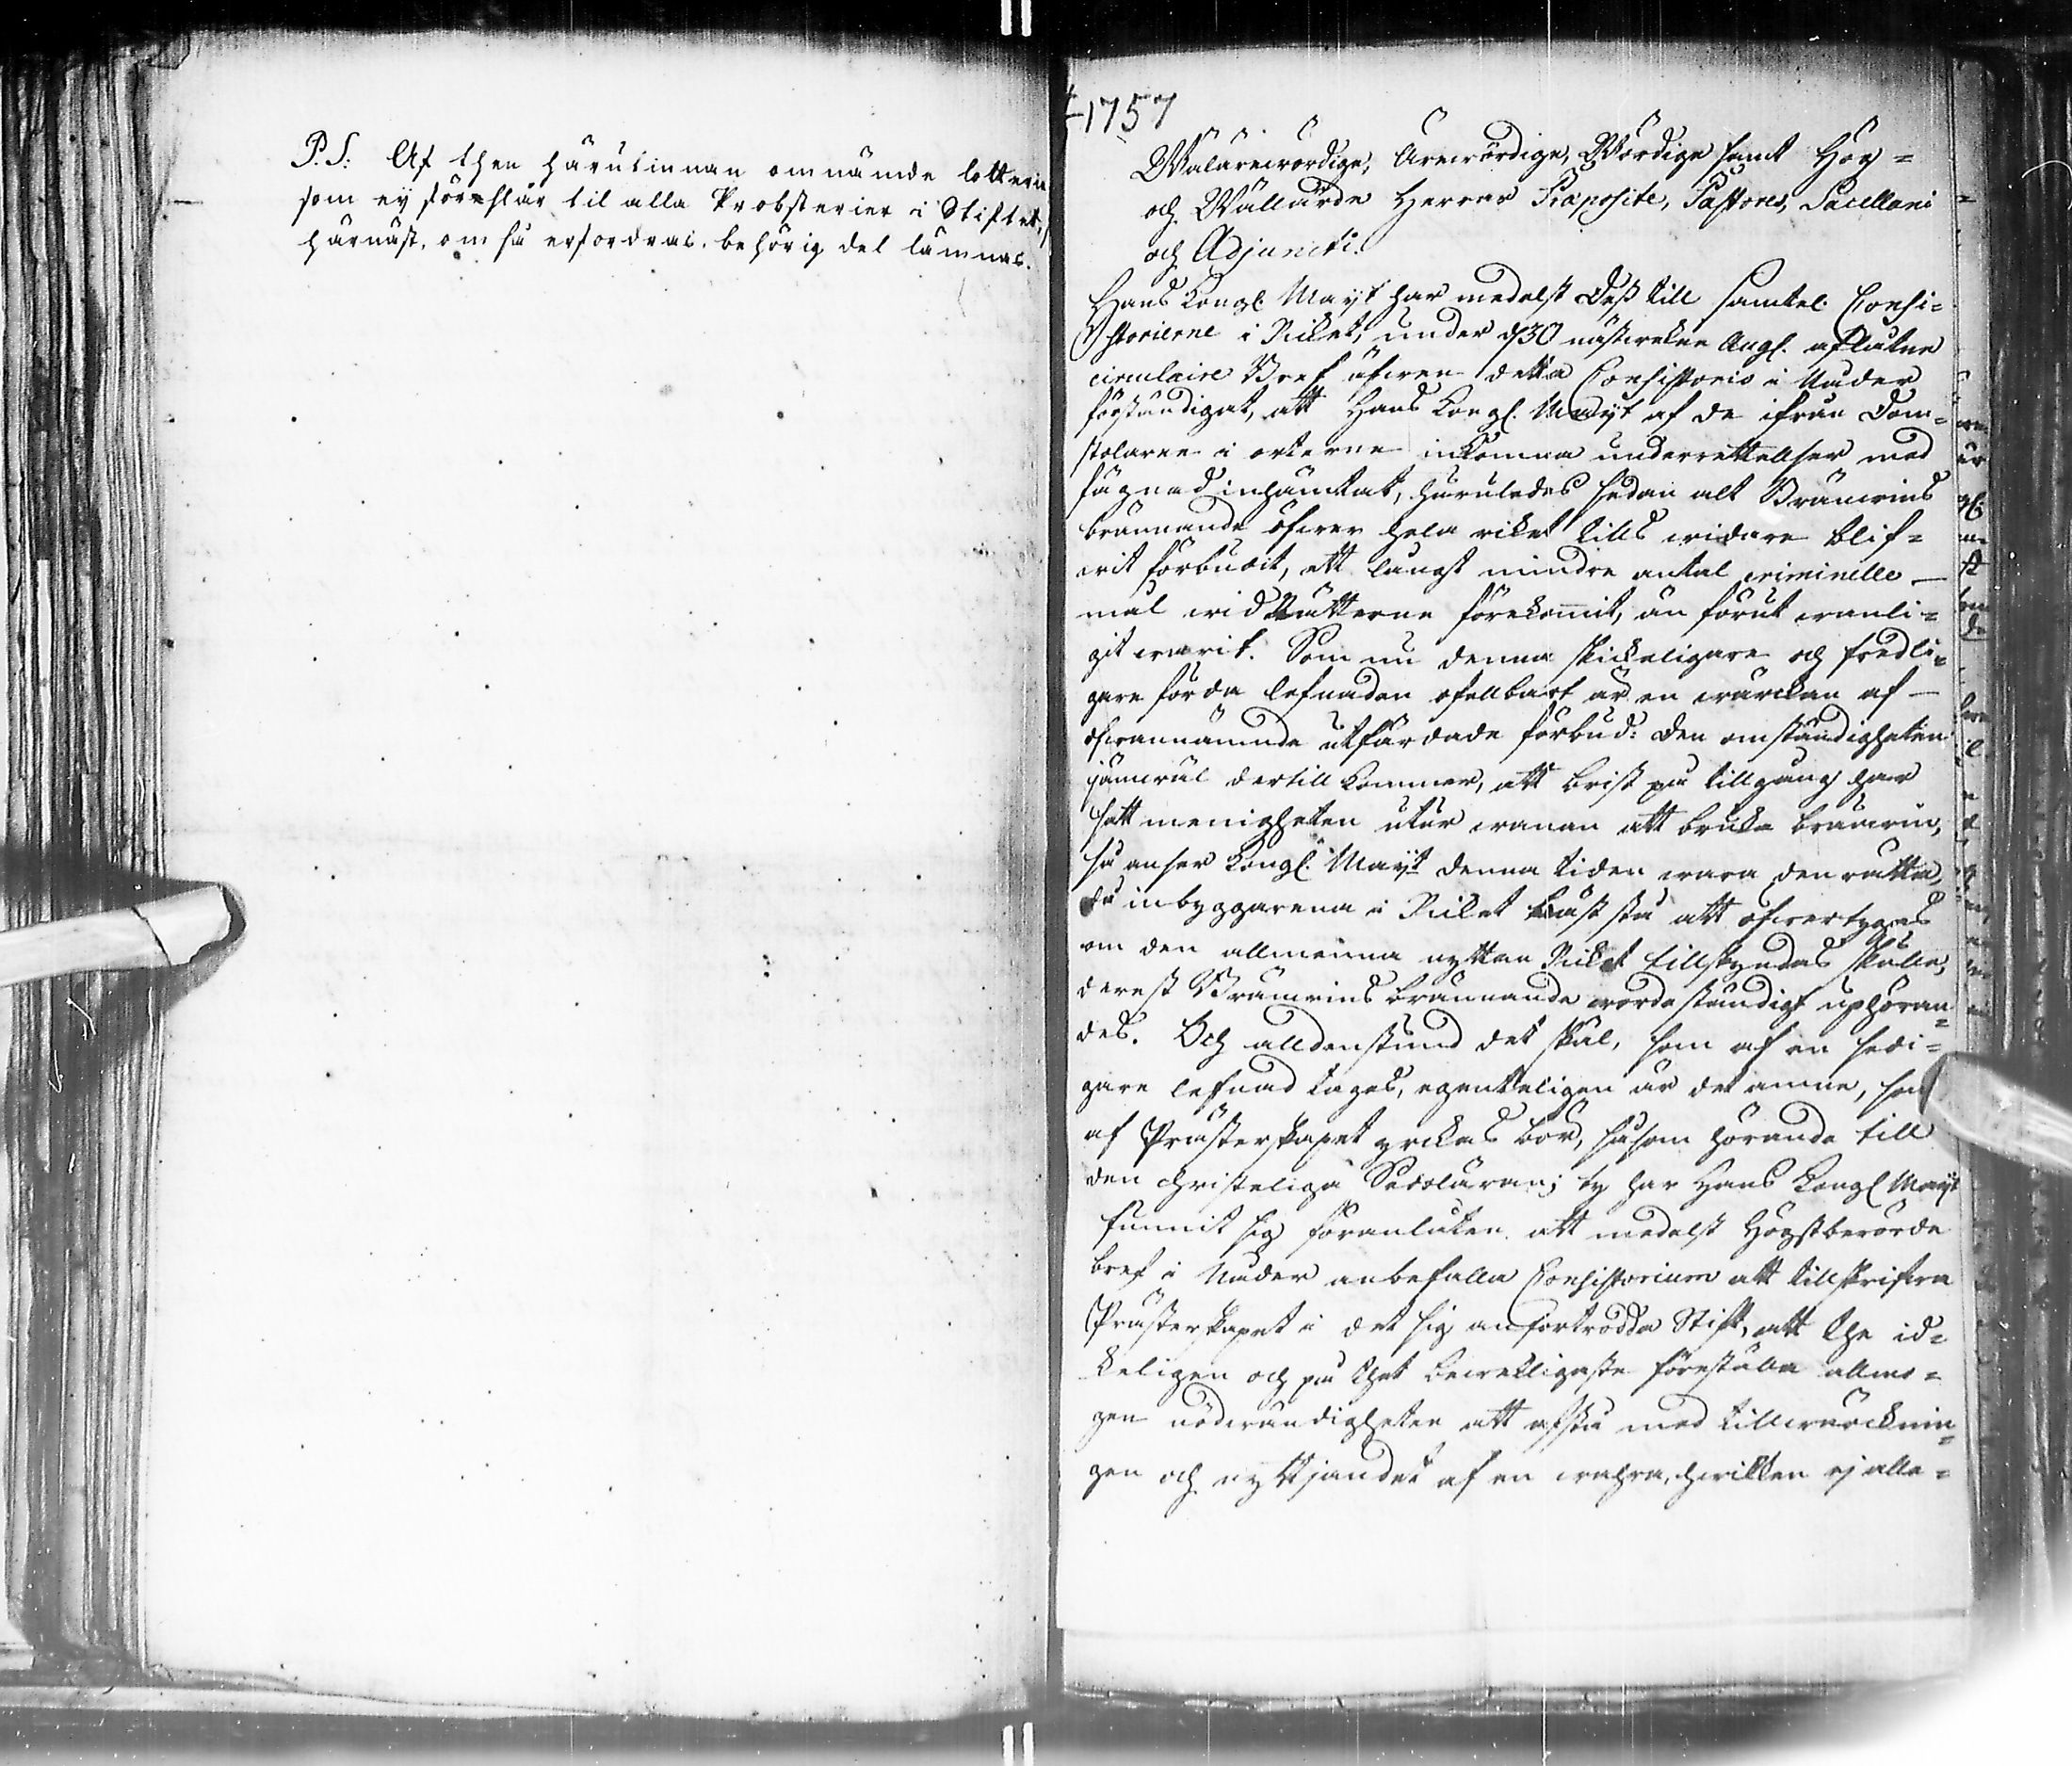 P.S. Af then härutinnan omnämde lotterie
som ey förslår til alla Probsterier i Stiftet,
härnäst, om så erfordras, behörig del lämnas.
1757
Wälärewördige, Ärewördige, Wördige samt Hög=
och Wällärde Herrar Præposite, Pastores, Sacellani
och Adjuncti.
Hans Kongl. Maÿt har medelst Dess till samtel. Consi=
storierne i Riket, under d 30 nästwekne Aug. aflåtne
circulaire Bref äfwen detta Consistorio i Nåder
förständigat, att Hans Kongl. Maÿt af de ifrån Dom=
stolarne i orterne inkomna underrettelser med
fägnad inhämtat, huruledes sedan alt Bränwins
brännande öfwer hela riket tills widare blif=
wit förbudit, ett långt mindre antal criminelle
mål wid Rätterne förekommit, än förut wanli=
git warit. Som nu denna skickeligare och fredli=
gare förda lefnaden ofelbart är en wärckan af
ofwannämnde utfärdade förbud: den omständigheten
jämwäl dertill kommer, att brist på tillgång har
satt menigheten utur wanan att bruka bränwin,
så anser Kongl. Maÿt denna tiden wara den rätta,
då inbyggarena i Riket bäst stå att öfwertygas
om den allmenna nyttan Riket tillskyndas skulle,
derest Bränwins brännande worde ständigt uphöran=
des. Och alldenstund det skäl, som af en sedi=
gare lefnad tages, egenteligen är det ämne, som
af Prästerskapet yrckas bör, såsom hörande till
den christeliga Sedoläran; ty har Hans Kongl Maÿt
funnit sig föranlåten att medelst Högstberörde
bref i Nåder anbefalla Consistorium att tillskrifwa
Prästerskapet i det sig anförtrodda Stift, att the id=
keligen och på thet bewekligaste föreställa allmo=
gen nödwändigheten att afstå med tillwärcknin=
gen och nyttjandet af en wahra, hwilken ej alle=